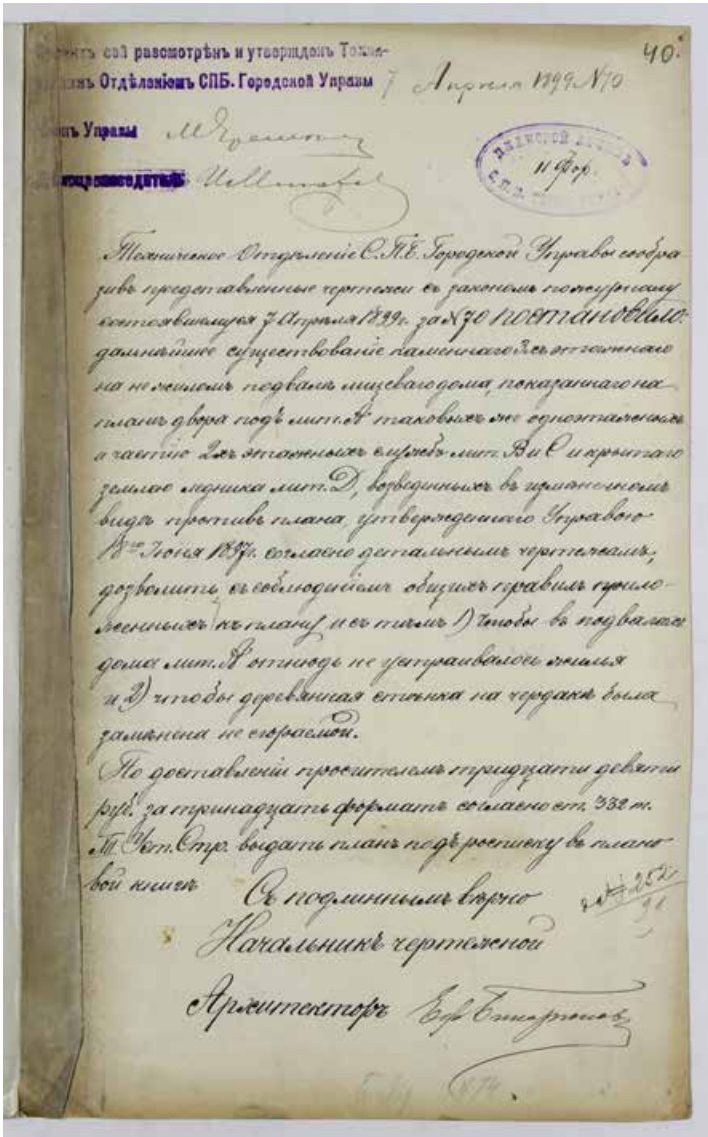 40.
Проектъ сей разсмотрѣнъ и утвержденъ Техни-
ческимъ Отдѣленіемъ СПБ. Городской Управы 7 Апрѣля 1899 №70
Членъ Управы
Дѣлопроизводитель
11 Фор.
Техническое Отдѣленіе С.П.Б. Городской Управы сообра-
зивъ представленные чертежи съ закономъ по журналу
состоявшемуся 7 Апрѣля 1899г. за №70 постановило:
дальнѣйшее существованіе каменнаго 3хъ этажнаго
на не жиломъ подвалѣ лицеваго дома, показаннаго на
планѣ двора подъ лит. А таковыхъ же одноэтажныхъ
и частію 2хъ этажныхъ службъ лит. В и С и крытаго
землею ледника лит. D, возведенныхъ въ измѣненномъ
видѣ противъ плана, утвержденнаго Управою
18го Іюня 1897г. согласно детальнымъ чертежамъ,
дозволить, съ соблюденіемъ общихъ правилъ прило-
женныхъ къ плану и съ тѣмъ 1) чтобы въ подвалахъ
дома лит. А отнюдь не устраивалось жилья
и 2) чтобы деревянная стѣнка на чердакѣ была
замѣнена не сгораемой.
По доставленіи просителемъ тридцати девяти
руб. за тринадцать форматъ согласно ст. 332 т.
Уст. Стр. выдать планъ подъ росписку въ плано
вой книгѣ
Съ подлиннымъ вѣрно
252
Начальникъ чертежной
Архитекторъ